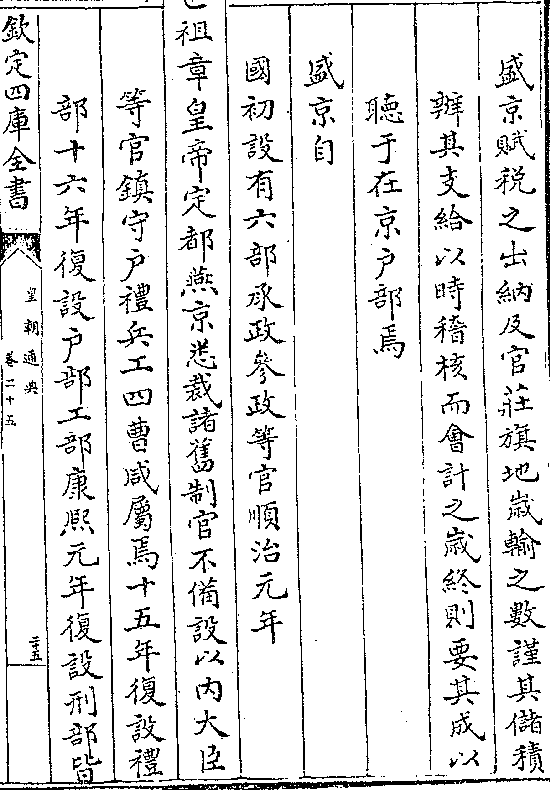 盛京賦稅之出納及官莊旗地歲輸之數謹其儲積
辦其支給以時稽核而會計之歲終則要其成以
聽于在京戶部焉
盛京自
國初設有六部承政參政等官順治元年
祖章皇帝定都燕京悉裁諸舊制官不備設以内大臣
等官鎮守戶禮兵工四曹咸屬焉十五年復設禮
部十六年復設戶部工部康熙元年復設刑部皆
欽定四庫全書
皇朝通典
卷二十五
二十五